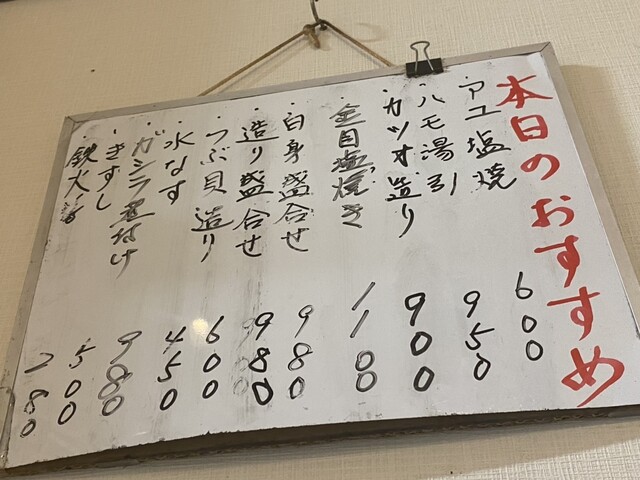 本日のおすすめ
・アユ塩焼 600
・ハモ湯引 950
・カツオ造り 900
・金目塩焼き 1100
・白身盛合せ 980
・造り盛合せ 980
・つぶ貝造り 600
・水なす 450
・ガシラ煮付け 980
・きずし 500
・鉄火巻 780